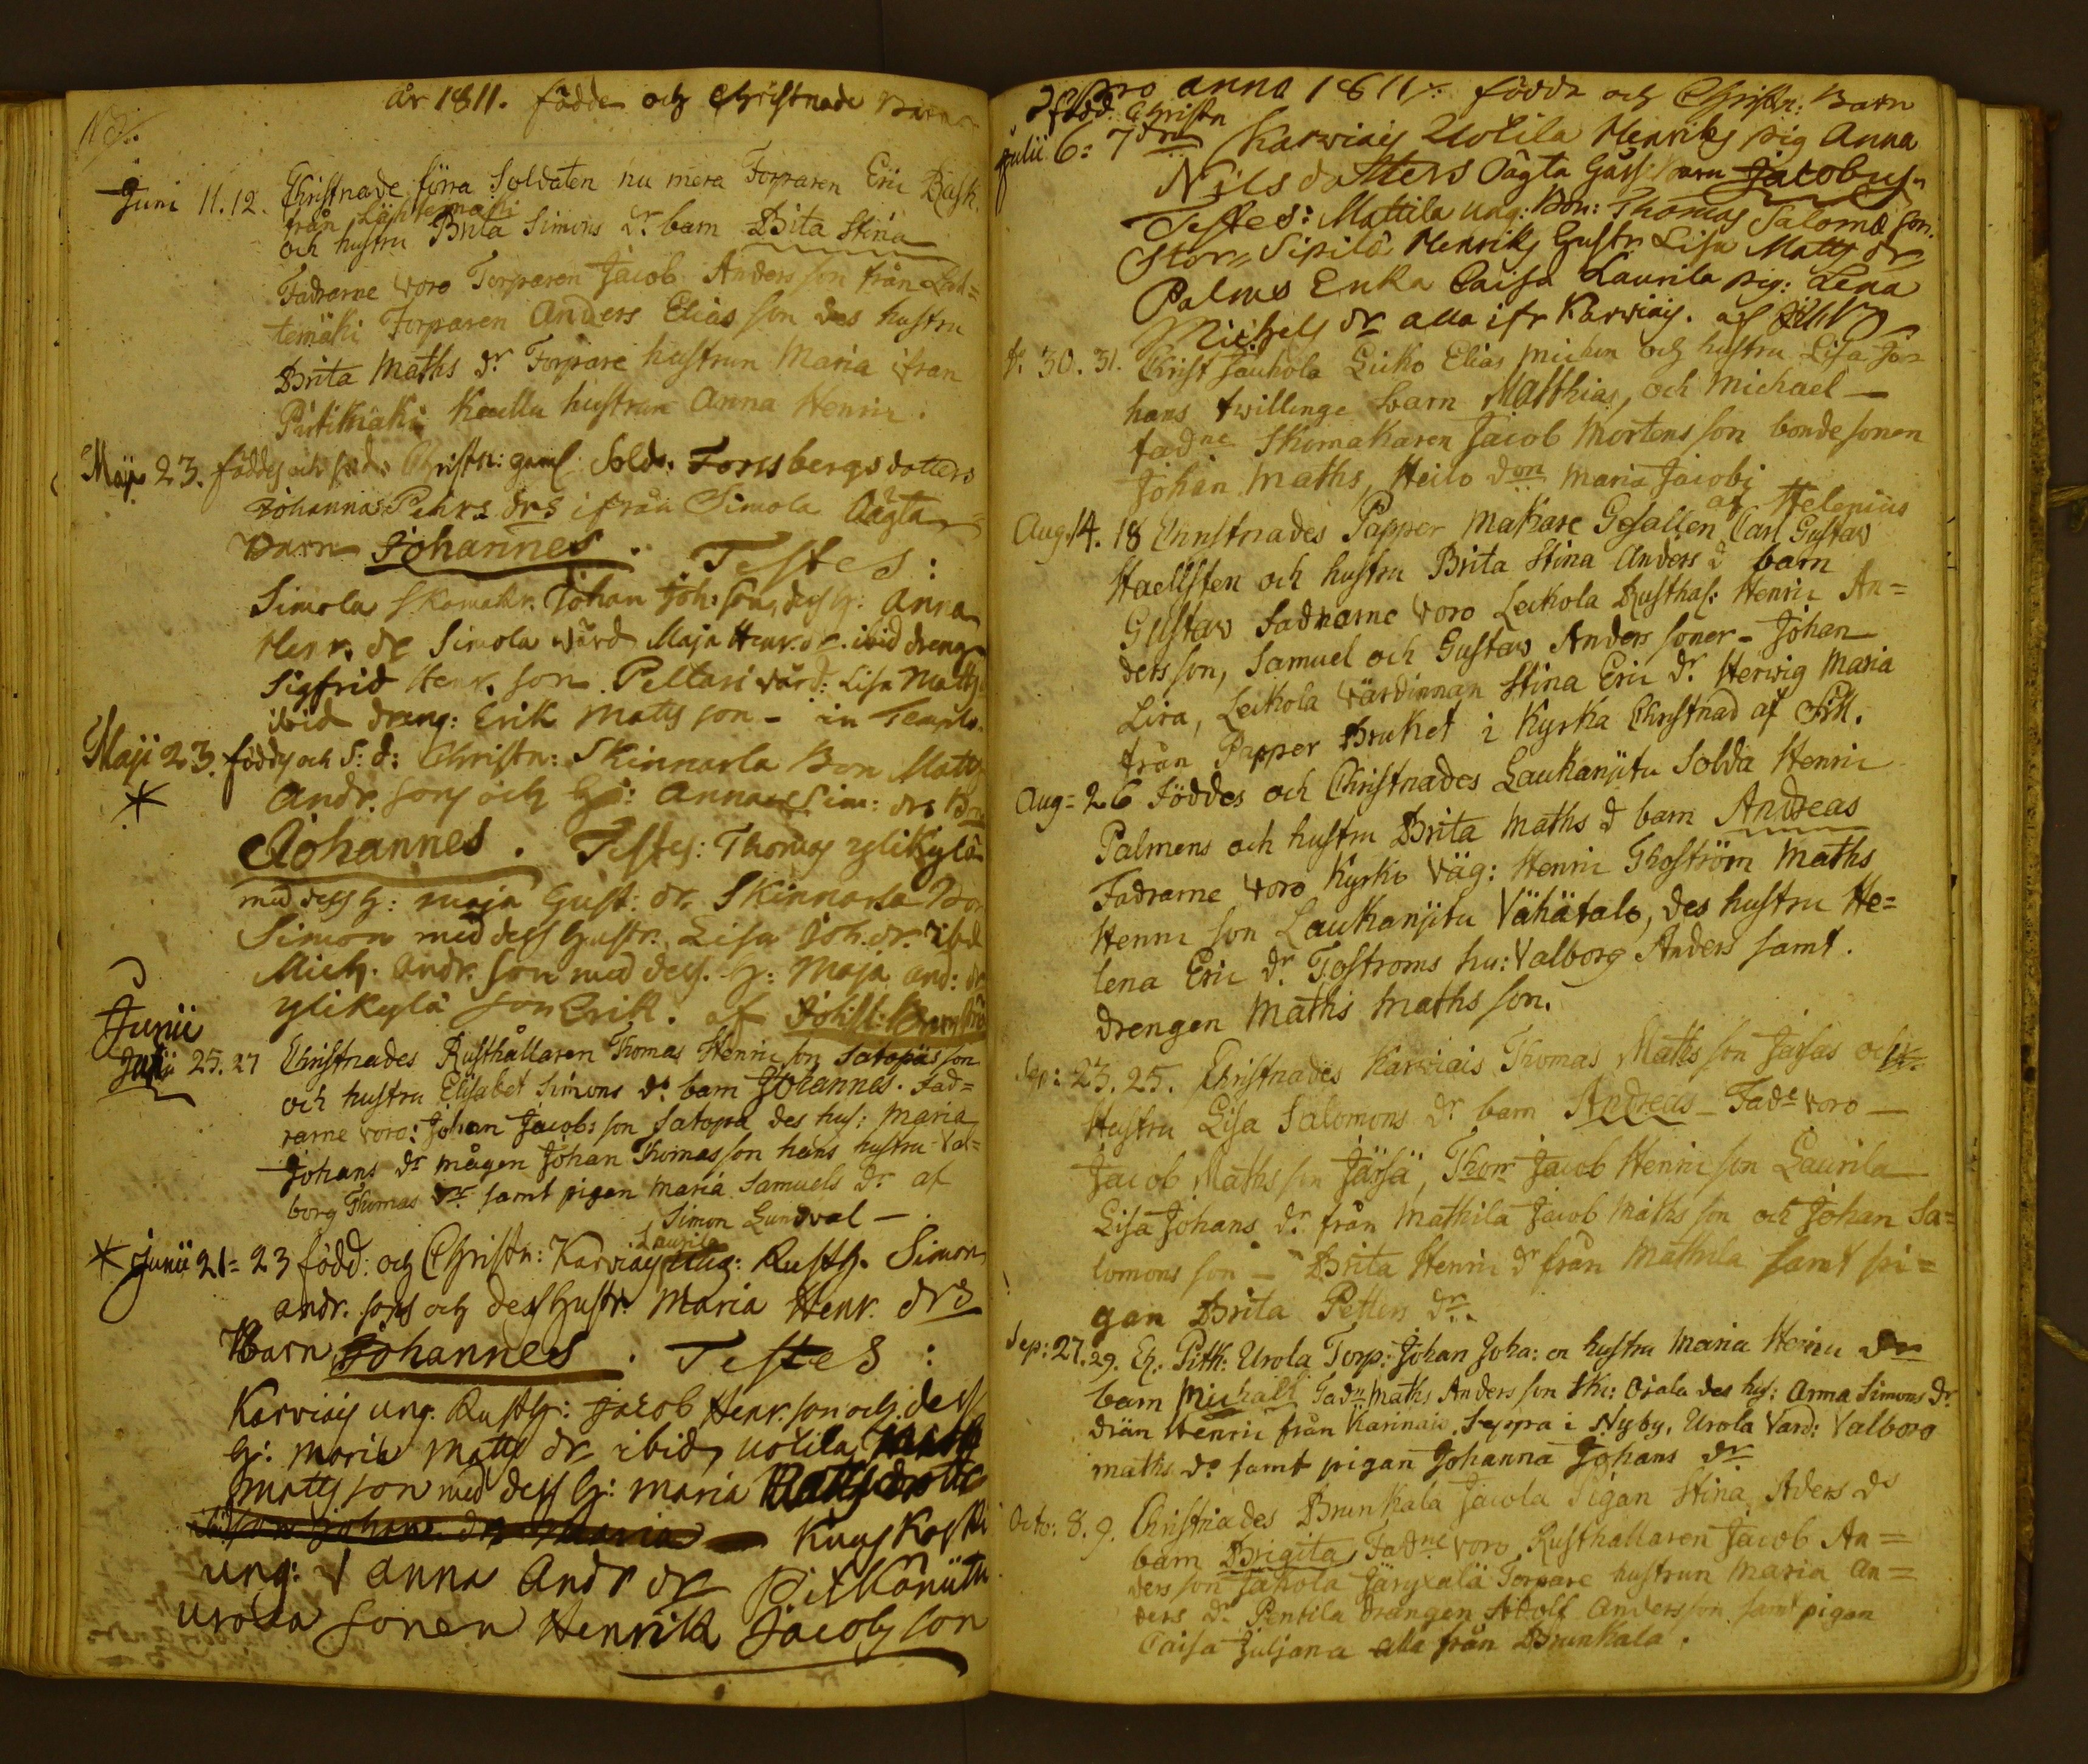 år 1811. födde och Christnade Barn
Juni 11.12. Christnade förra Soldaten nu mera Torparen Eric Rask.
från Lähtemäki
och hustru Brita Simons dr. barn Brita Stina
Fadrarne voro Torparen Jacob Andersson från Läh=
temäki Torparen Anders Elias son des hustru
Brita Maths dr. Torpare hustrun Maria ifran
hustrun Anna Henric.
Maji 23. föddes och Christn: gaml. Sold. Forssbergs dotters
Johannas Pehrs drs ifrån Simola Oägta
Barn Johannes. Testes:
Simola Skomakr. Johan Joh: son, dess h: Anna
Henr. dr Simola wärd Maja Henr. dr. ibid dreng
Sigfrid Henr. son. Peltari värd: Lisa Matts
ibid dreng: Erik Matts son - in Templo.
Maji 23. föddes och S: d: Christn: Skinnarla Bon Matts
Andr. sons och h: Annas Sim: drs Barn
Johannes. Testes: Thomas ylikylä
med dess h: Maja Gust: dr. Skinnarla Bon
Simon med dess hustr. Lisa Joh. dr. ibid
Mich. Andr. son med dess h: Maja And: dr
ylikylä son Erik. af
Junii
25.27 Christnades Rusthållaren Thomas Henric son Satopäs son
och hustru Elisabet Simons dr. barn Johannes. Fad=
rarne voro: Johan Jacobs son Satopä des hus: Maria
Johans dr mågen Johan Thomasson hans hustru Val=
borg Thomas dr samt pigan Maria Samuels Dr. af
Simon Lundval —
Junii 21 = 23 född: och Christn: Karviais Laurila Rusth. Simon
andr. sons och dess hustr. Maria Henr. drs
Barn Johannes. Testes:
Karviais ung. Rusth: Jacob Henr. son och dess
h: Maria Matts dr ibid, Uotila
Matts son med dess h: Maria
Kuuskoski
ung: Anna Andr dr Pitkäniitu
Urola sonen Henrik Jacobs son
Anno 1811. födda och Christn: Barn
född. Christn
Julii 6= 7 Karviais Uotila Henriks pig Anna
Nils dotters Oägta Gåsse barn Jacobus.
Testes: Mattila ung: Bon: Thomas Salome son.
Stor= Sipilä Henriks hustr. Lisa Matts dr
Palms Enka Caisa Laurila pig: Lena
Michels dr alla ifr Karviais. af
30. 31. Christ Jaukola Leiko Elias Michen och hustru Lisa Jo=
hans twillinge barn Matthias, och Michael —
fadne Skomakaren Jacob Mortens son bonde sonen
Johan Maths, Heilo don Maria Jacobi
af Helenius
Aug. 14. 18 Christnades Papper Makare Gesallen Carl Gustav
Haellsten och hustru Brita Stina Anders d barn
Gustav Fadrarne voro Leikola Rusthal: Henric An=
dersson, Samuel och Gustav Anders soner - Johan
Lira, Leikola värdinnan Stina Eric dr. Hervig Maria
från Papper Bruket i Kyrka Christnad af Sill.
Aug = 26 Föddes och Christnades Laukanjitu Solda Henric
Palmens och hustru Brita Maths d barn Andreas
Fadrarne voro Kyrko Väg: Henric Thoström Maths
Henric son Laukanjitu Vähätalo, des hustru He=
lena Eric dr. Tostroms hu: Valborg Anders samt.
drengen Maths Maths son.
Sep: 23. 25. Christnades Karviais Thomas Maths son Järsäs och
Hustru Lisa Salomons dr barn Andreas - Fade voro —
Jacob Mathsson Järsä, Thom Jacob Henric son Laurila
Lisa Johans dr. från Mathila Jacob Mathsson och Johan Sa=
lomons son - Brita Henric dr från Mathila samt pi=
gan Brita Petters dr.
Sep: 27. 29. Ch. Pitk: Urola Torp: Johan Joha: on hustru Maria Henric dr
barn Michall Fadn Maths Andersson Sku: Ojala des hus: Anna Simons dr.
drän Henric från Karinais. Seppra i Nyby. Urola Vard: Valborg
maths dr samt pigan Johanna Johans dr
Octo: 8. 9. Christnades Brunkala Jacola Pigan Stina Aders ds
barn Brigita, Fadne voro Rusthallaren Jacob An=
dersson Jakola Järyxälä Torpare hustrun Maria An=
ders dr. Pentila drangen Adolf Andersson samt pigan
Caisa Juljana alla från Brunkala.